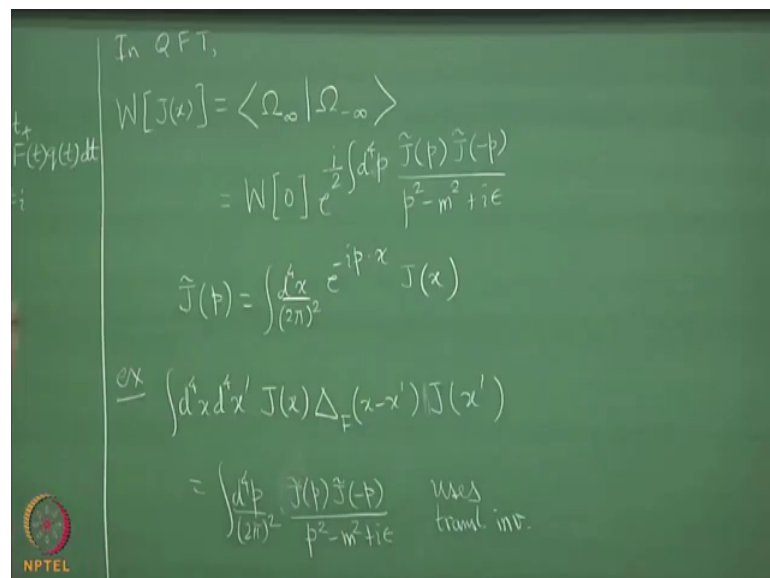 In QFT,
t₊
W[J(x)] = ⟨Ω_∞ | Ω_{-∞}⟩
F(t)q(t)dt
= W[0] e^{-\frac{i}{2} ∫d⁴p \frac{J̃(p) J̃(-p)}{p² - m² + iε}}
J̃(p) = ∫ \frac{d⁴x}{(2π)²} e^{-ip·x} J(x)
ex ∫d⁴x d⁴x' J(x) Δ_F(x-x') J(x')
= ∫ \frac{d⁴p}{(2π)²} · \frac{J̃(p) J̃(-p)}{p² - m² + iε} uses
transl inv.
NPTEL